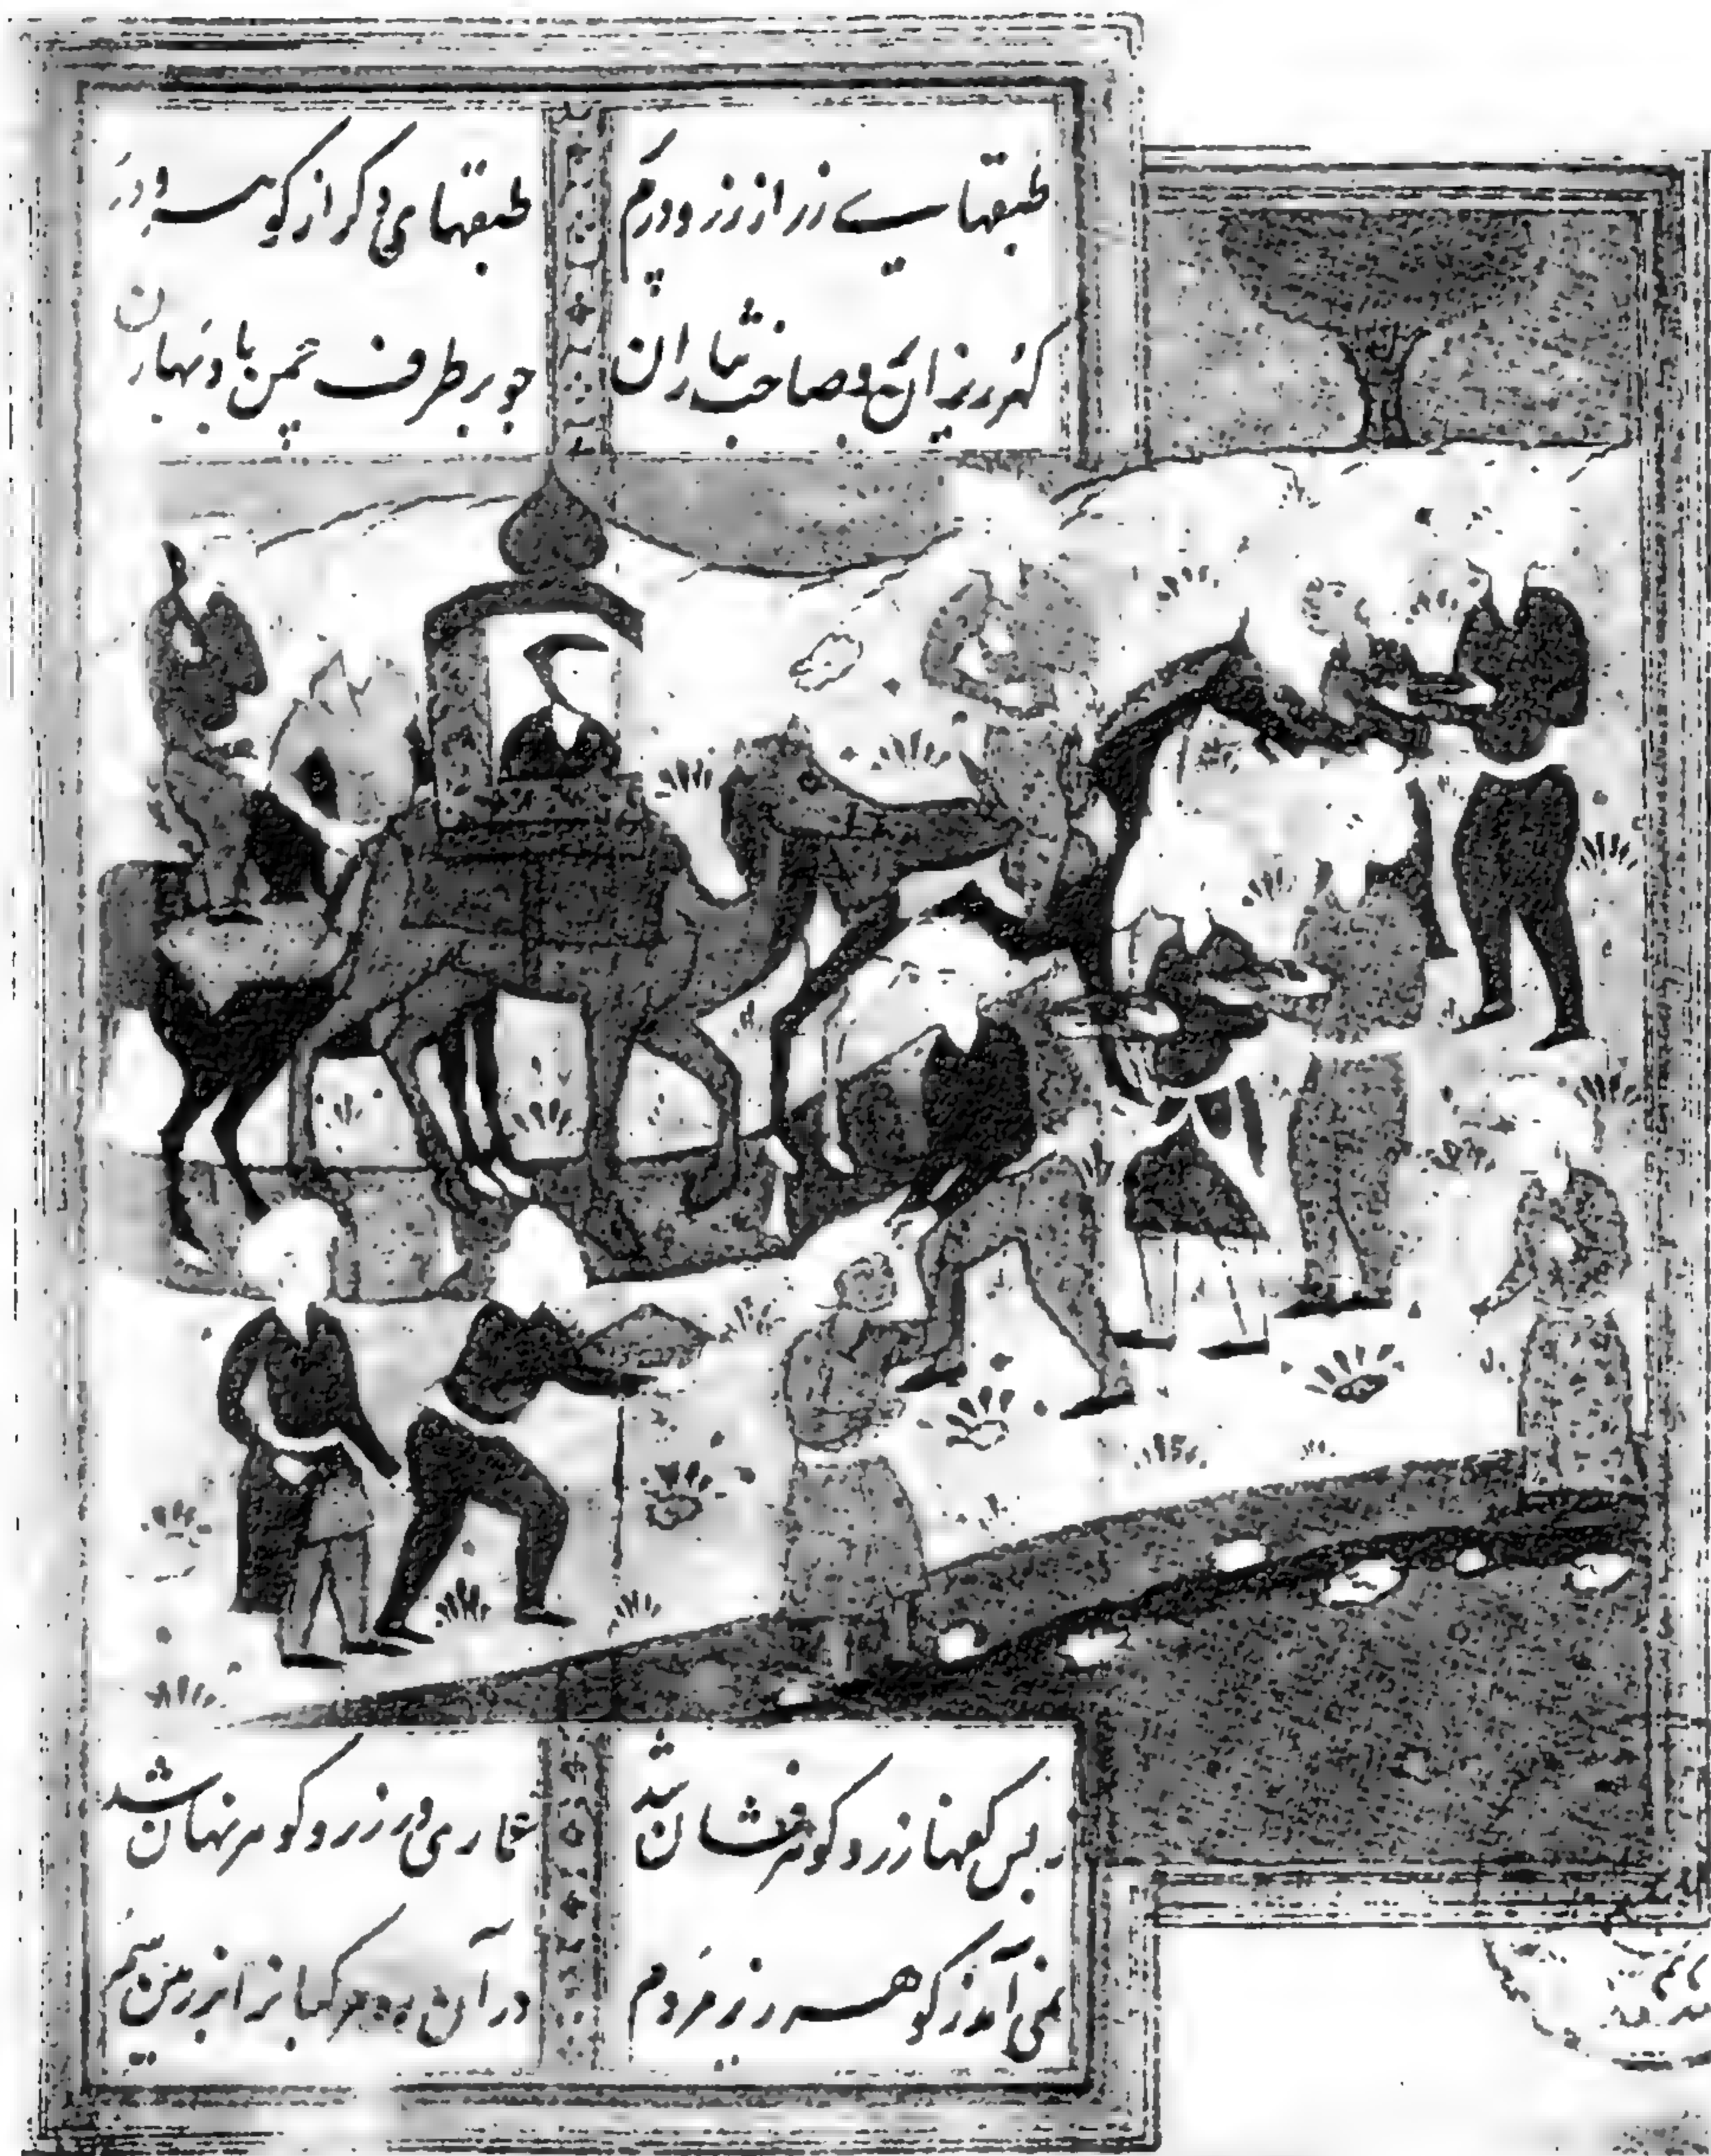 طبقهای زر از زر و درم پر طبقهای دکر از کوهر و در
کهرریزان صاحب نثاران جو بر طرف چمن باد بهاران
ز بس کفها زر و کوهر فشان شد عماری در زر و کوهر نهان شد
نمی آمد ز کوهر ریز مردم در آن ره مرکبانرا بر زمین سم